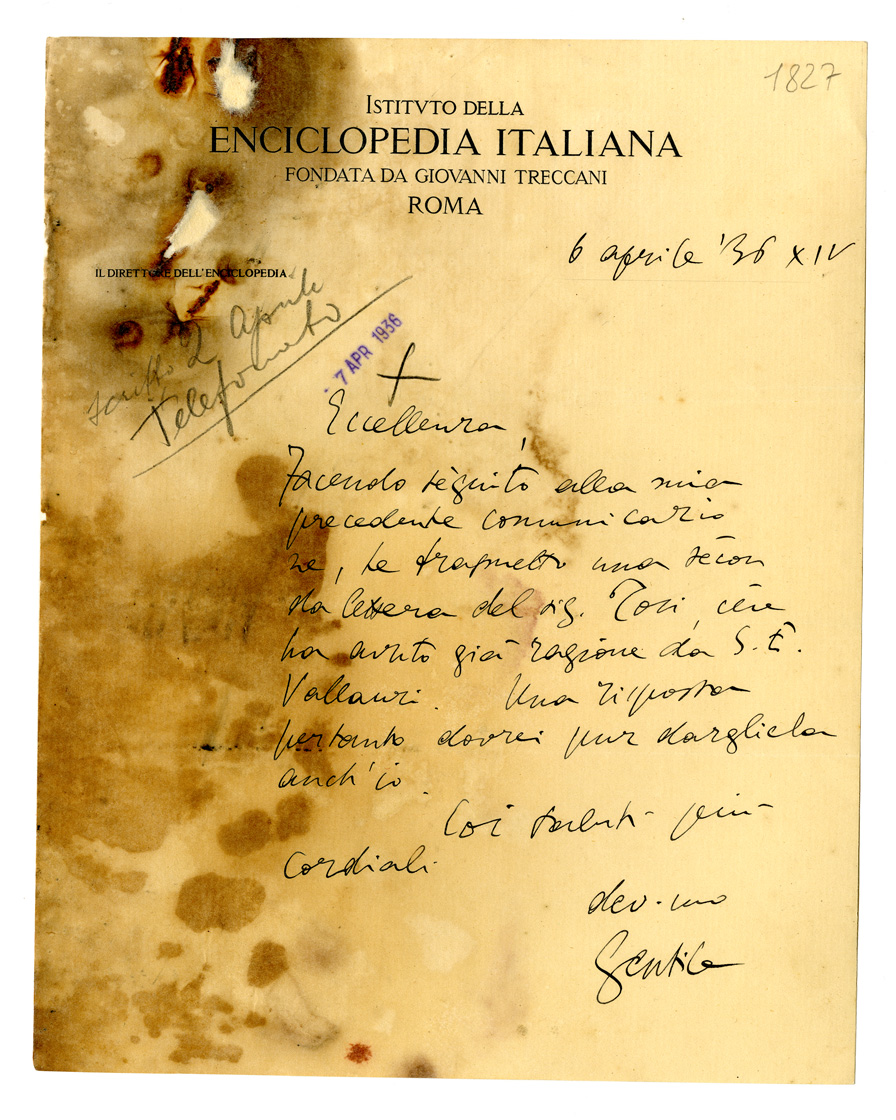 1827
ISTITVTO DELLA
ENCICLOPEDIA ITALIANA
FONDATA DA GIOVANNI TRECCANI
ROMA
6 aprile '36 XIV
IL DIRETTORE DELL'ENCICLOPEDIA
scritto 2 Aprile
Telefonato
7 APR 1936
Eccellenza,
Facendo séguito alla mia
precedente comunicazio
ne, Le trasmetto una secon
da lettera del sig. Tosi, che
ha avuto già ragione da S. E.
Vallauri. Una risposta
pertanto dovrei pur dargliela
anch'io.
Coi saluti più
cordiali
dev.mo
Gentile